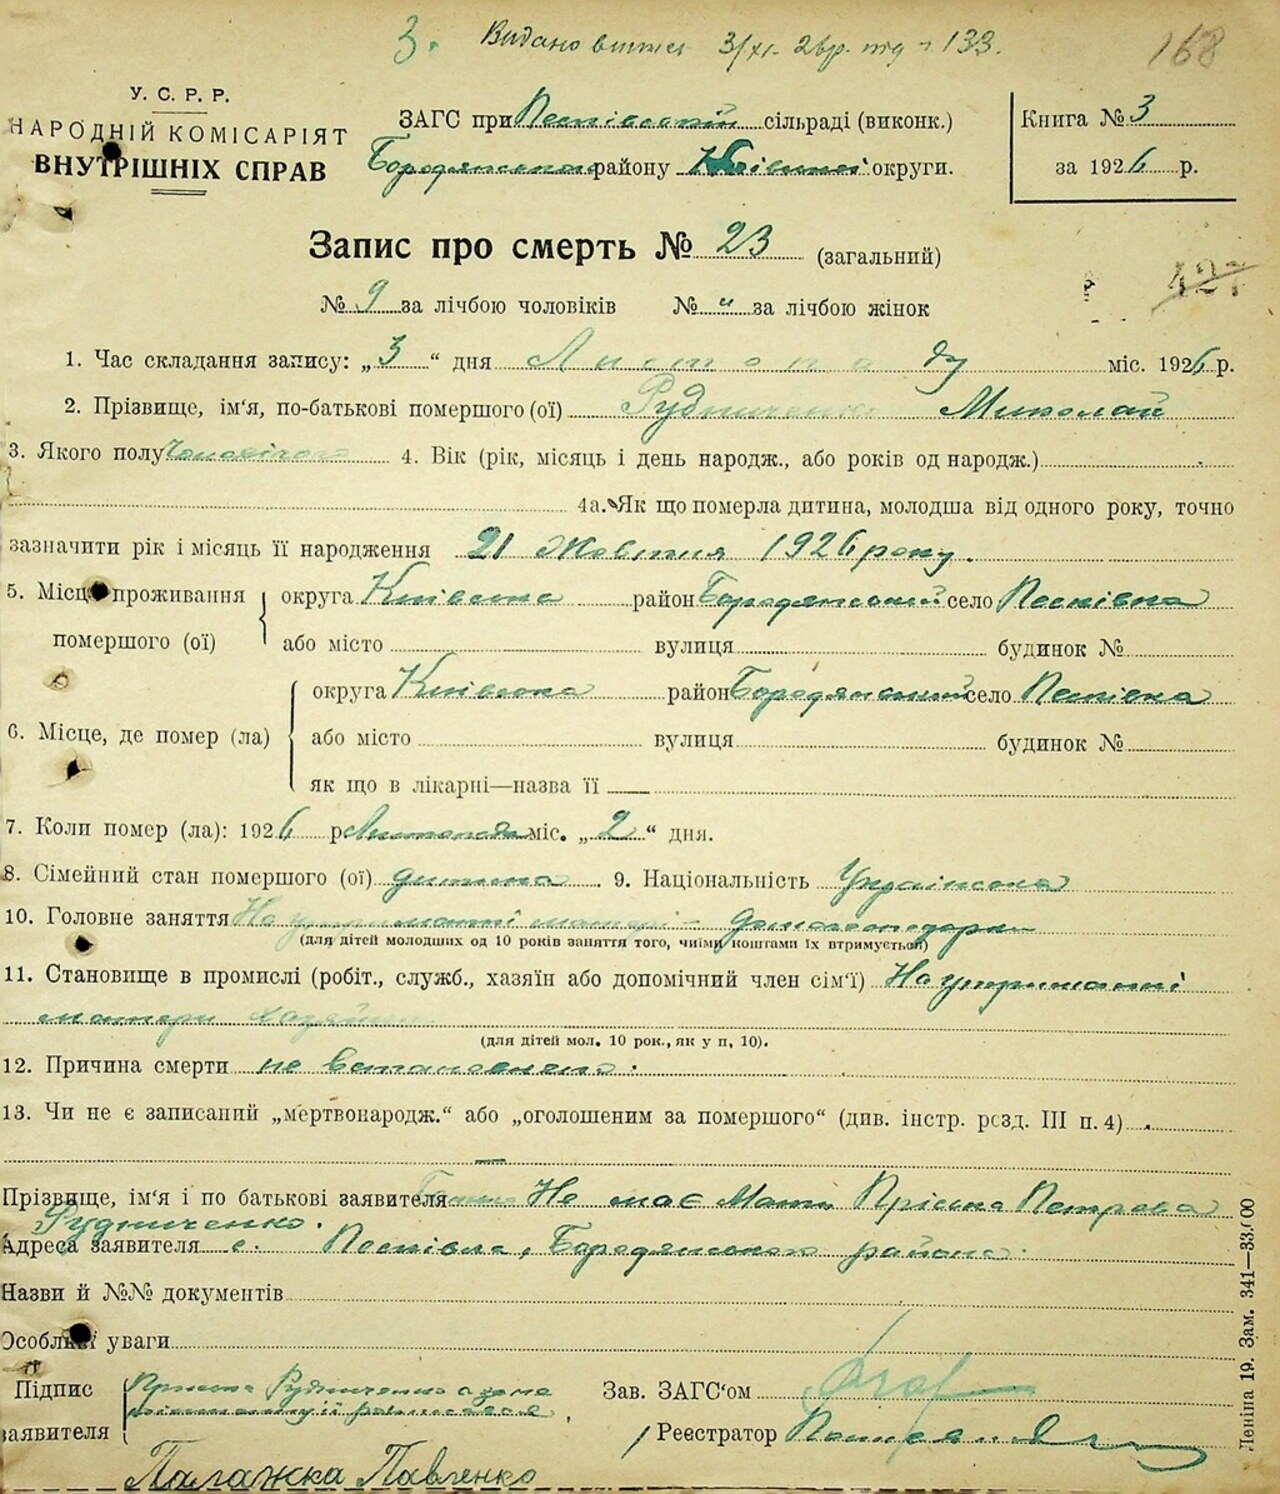 3. Видано витяг 3/XI. 26р. під № 133.
168
У. С. Р. Р.
НАРОДНІЙ КОМІСАРІЯТ
ВНУТРІШНІХ СПРАВ
ЗАГС при Пісківській сільраді (виконк.)
Бородянського району Київської округи.
Книга № 3
за 1926 р.
Запис про смерть № 23 (загальний)
427
№ 9 за лічбою чоловіків № " за лічбою жінок
1. Час складання запису: „3“ дня Листопаду міс. 1926 р.
2. Прізвище, ім'я, по-батькові помершого (ої) Рудниченко Миколай
3. Якого полу Чоловічого 4. Вік (рік, місяць і день народж., або років од народж.)
4а. Як що померла дитина, молодша від одного року, точно
зазначити рік і місяць її народження 21 Жовтня 1926 року.
5. Місце проживання помершого (ої) округа Київська район Бородянський село Песківка
або місто вулиця будинок №
6. Місце, де помер (ла) округа Київська район Бородянський село Песківка
або місто вулиця будинок №
як що в лікарні—назва її
7. Коли помер (ла): 1926 р. Листопада міс. „2“ дня.
8. Сімейний стан помершого (ої) дитина. 9. Національність Українська
10. Головне заняття На утриманні матері - домогосподарки
(для дітей молодших од 10 років заняття того, чиїми коштами їх втримується)
11. Становище в промислі (робіт., служб., хазяїн або допомічний член сім'ї) На утриманні
матери хазяйки
(для дітей мол. 10 рок., як у п. 10).
12. Причина смерти не встановлено.
13. Чи не є записаний „мертвонародж.“ або „оголошеним за помершого“ (див. інстр. розд. III п. 4)
Прізвище, ім'я і по батькові заявителя Не має Мати Прісіна Петрова
Рудниченко.
Адреса заявителя с. Песківка, Бородянського району.
Назви й №№ документів
Особливі уваги
Підпис заявителя Рудниченко
Палажка Павленко
Зав. ЗАГС'ом
Реєстратор
Леніна 19. Зам. 341—33.000